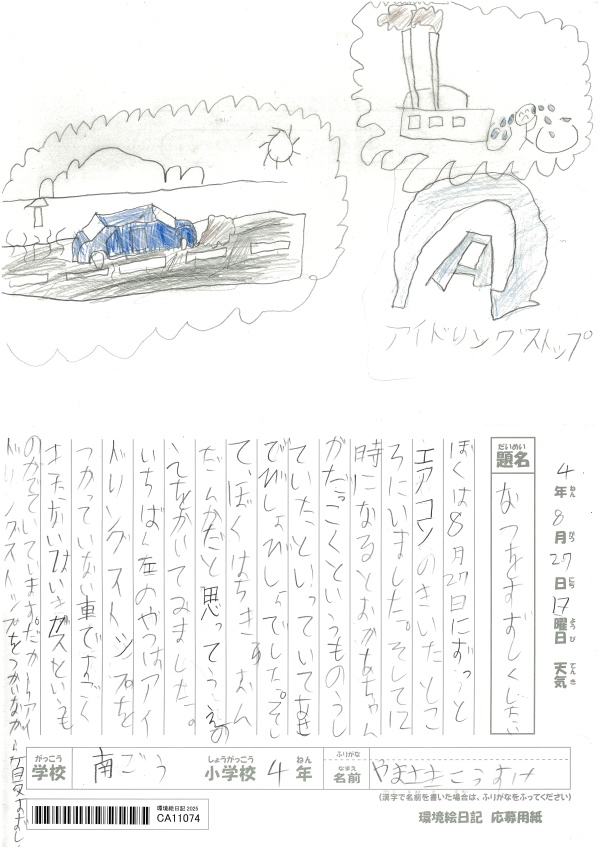 アイドリングストップ
4年8月27日17曜日 天気
ねん がつ にち ようび てんき
だいめい
題名 なつをすずしくしたい
ぼくは8月27日にずっと
エアコンのきいたとこ
ろにいました。そして12
時になるとおかあちゃん
がだっこくというものうし
ていたといっていてあせ
でびしょびしょでした。そし
て、ぼくはちきゅうおん
だんかだと思って
かいてみました。
いちばん左のやつはアイ
ドリングストップを
つかっていない車ですごく
きたないはいきガスというも
のがでていています。だからアイ
ドリングストップをつかいながら夏
がっこう
学校 南ごう
しょうがっこう
小学校 4 ねん
年
ふりがな
なまえ
名前 やまさきこうすけ
(漢字で名前を書いた場合は、ふりがなをふってください)
環境絵日記 2025
CA11074
環境絵日記 応募用紙